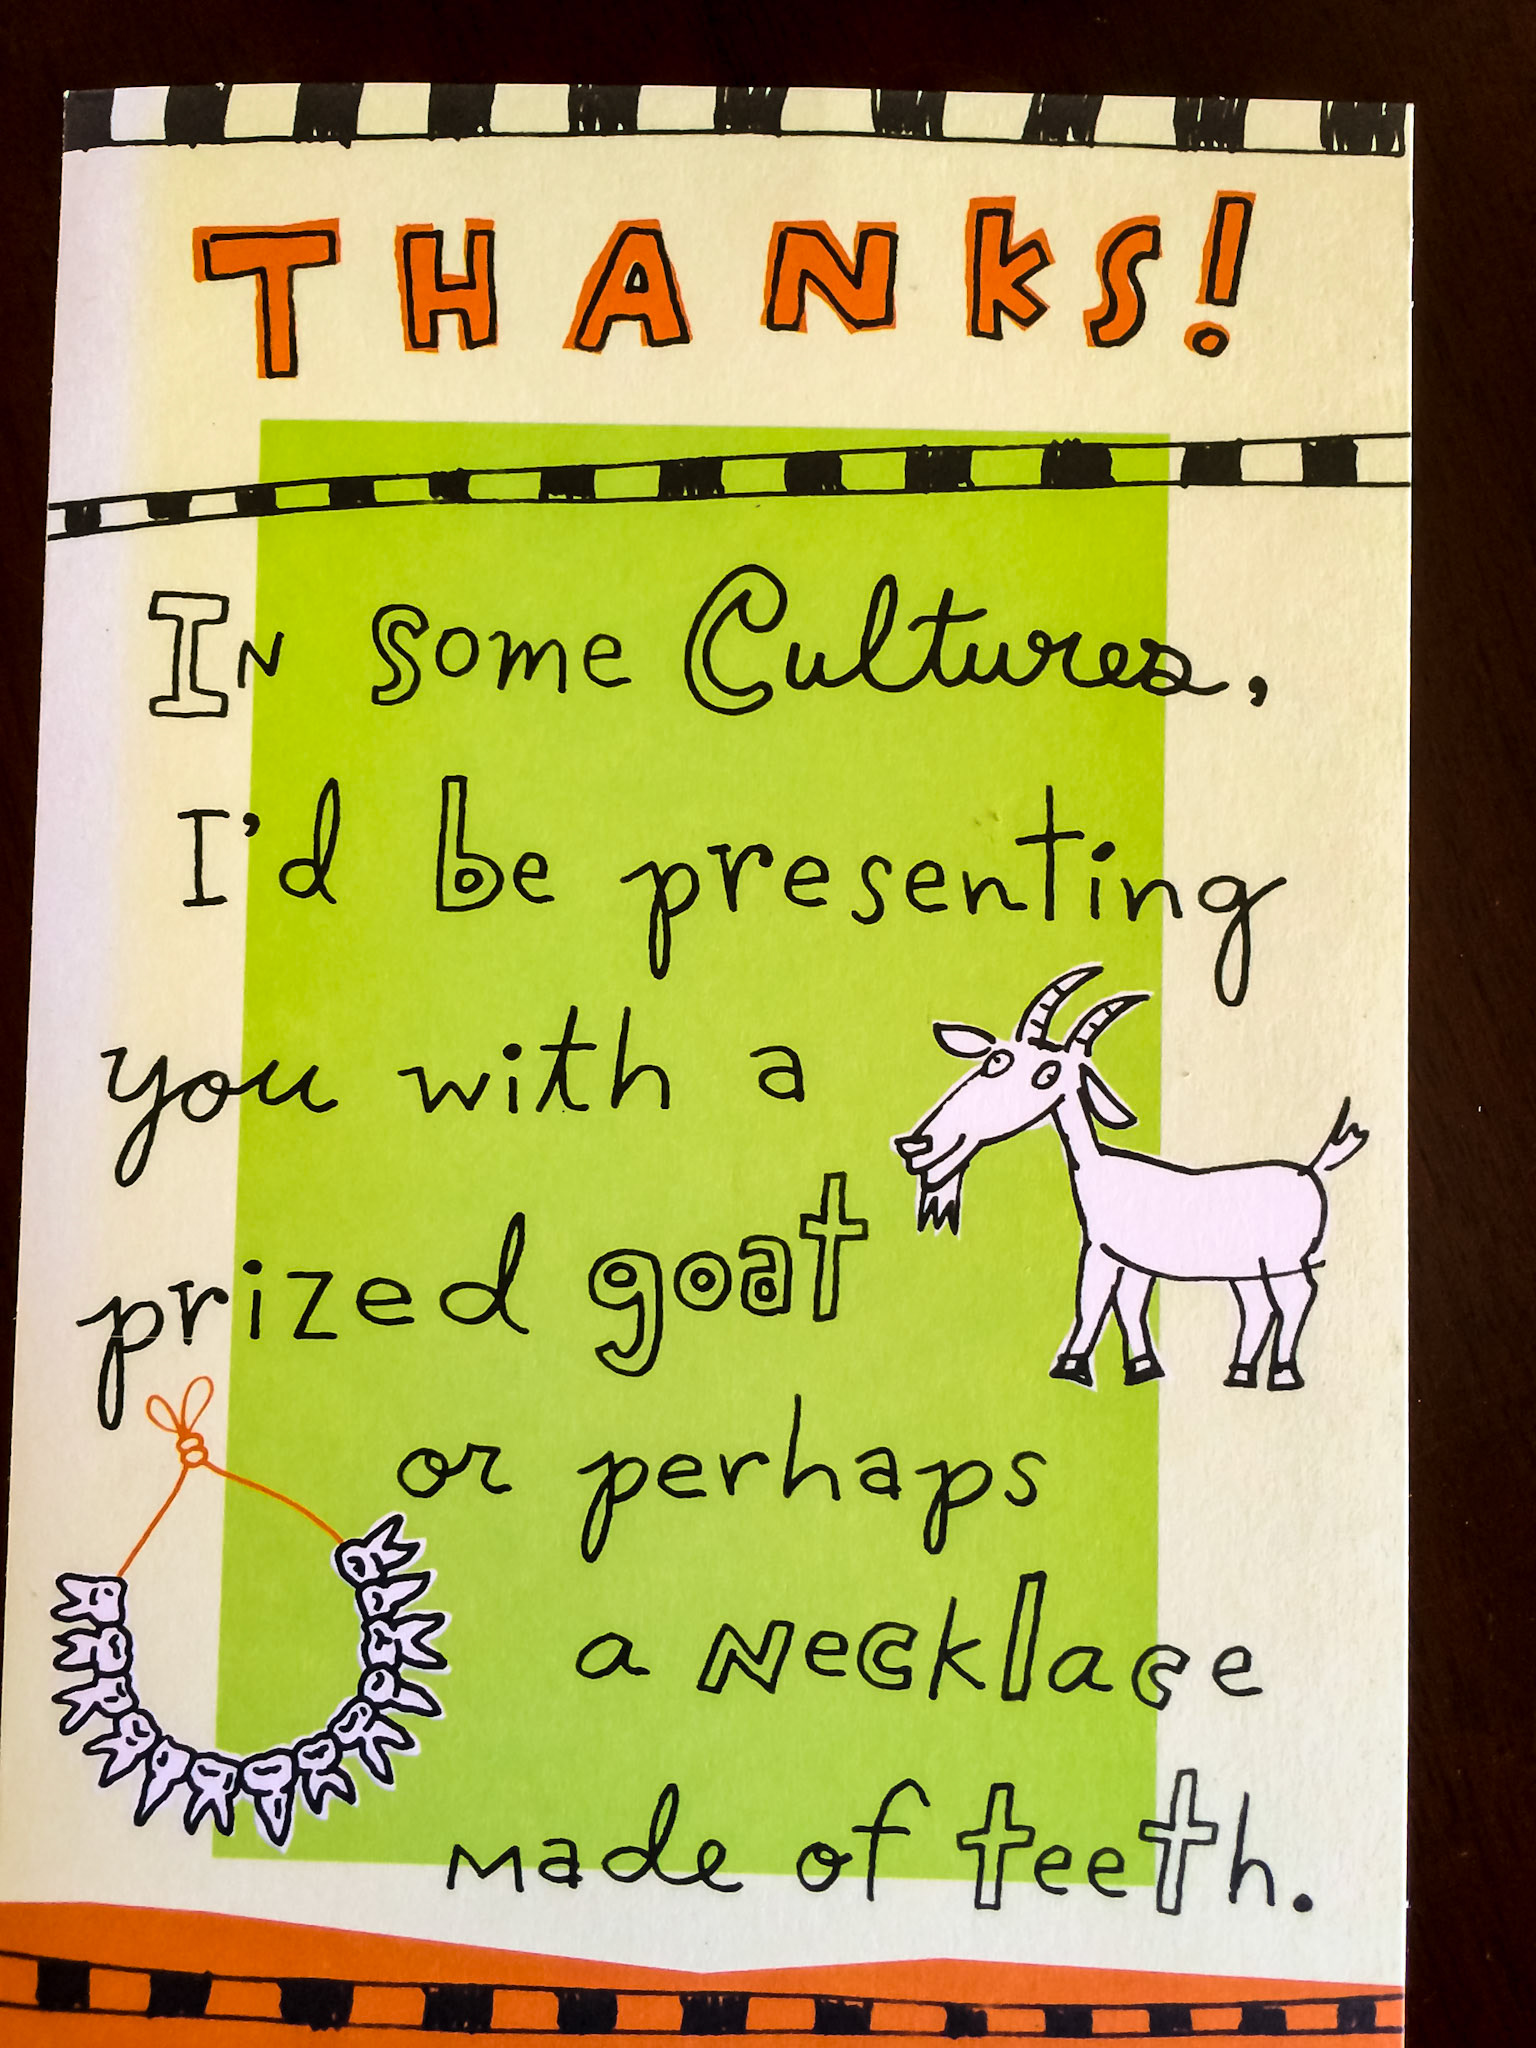 THANKS!
In some Cultures,
I'd be presenting
you with a
prized goat
or perhaps
a necklace
made of teeth.